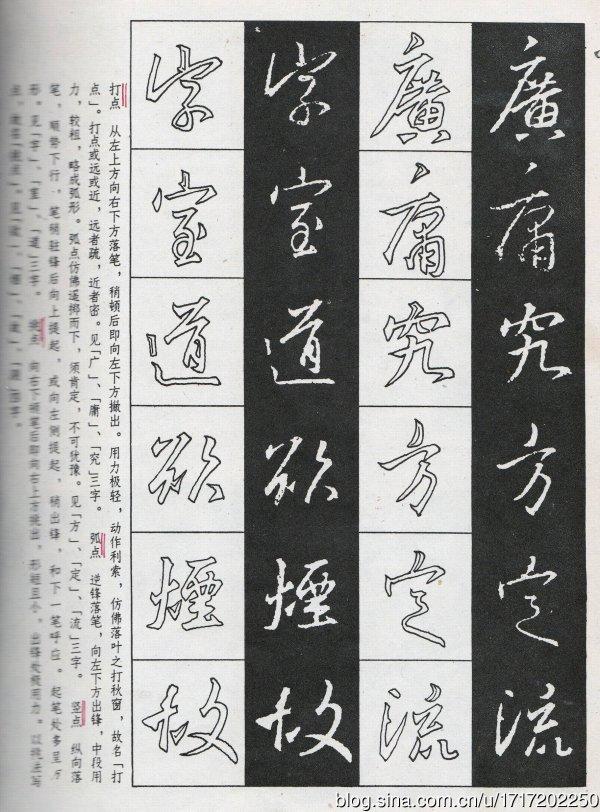 廣庸究方定流
廣庸究方定流
字室道欲煙故
字室道欲煙故
打点 从左上方向右下方落笔，稍顿后即向左下方撇出。用力极轻，动作利索，仿佛落叶之打秋窗，故名「打
点」。打点或远或近，远者疏，近者密。见「广」、「庸」、「究」三字。 弧点 逆锋落笔，向左下方出锋，中段用
力，较粗，略成弧形。弧点仿佛遥掷而下，须肯定，不可犹豫。见「方」、「定」、「流」三字。 竖点 纵向落
笔，顺势下行，笔稍驻锋后向上提起，或向左侧提起，稍出锋，和下一笔呼应。起笔处多呈方
形。见「字」、「室」、「道」三字。 挑点 向右下顿笔后即向右上方挑出，形短且小，出锋处极用力。以挑法写
点，故名「挑点」。见
blog.sina.com.cn/u/1717202250